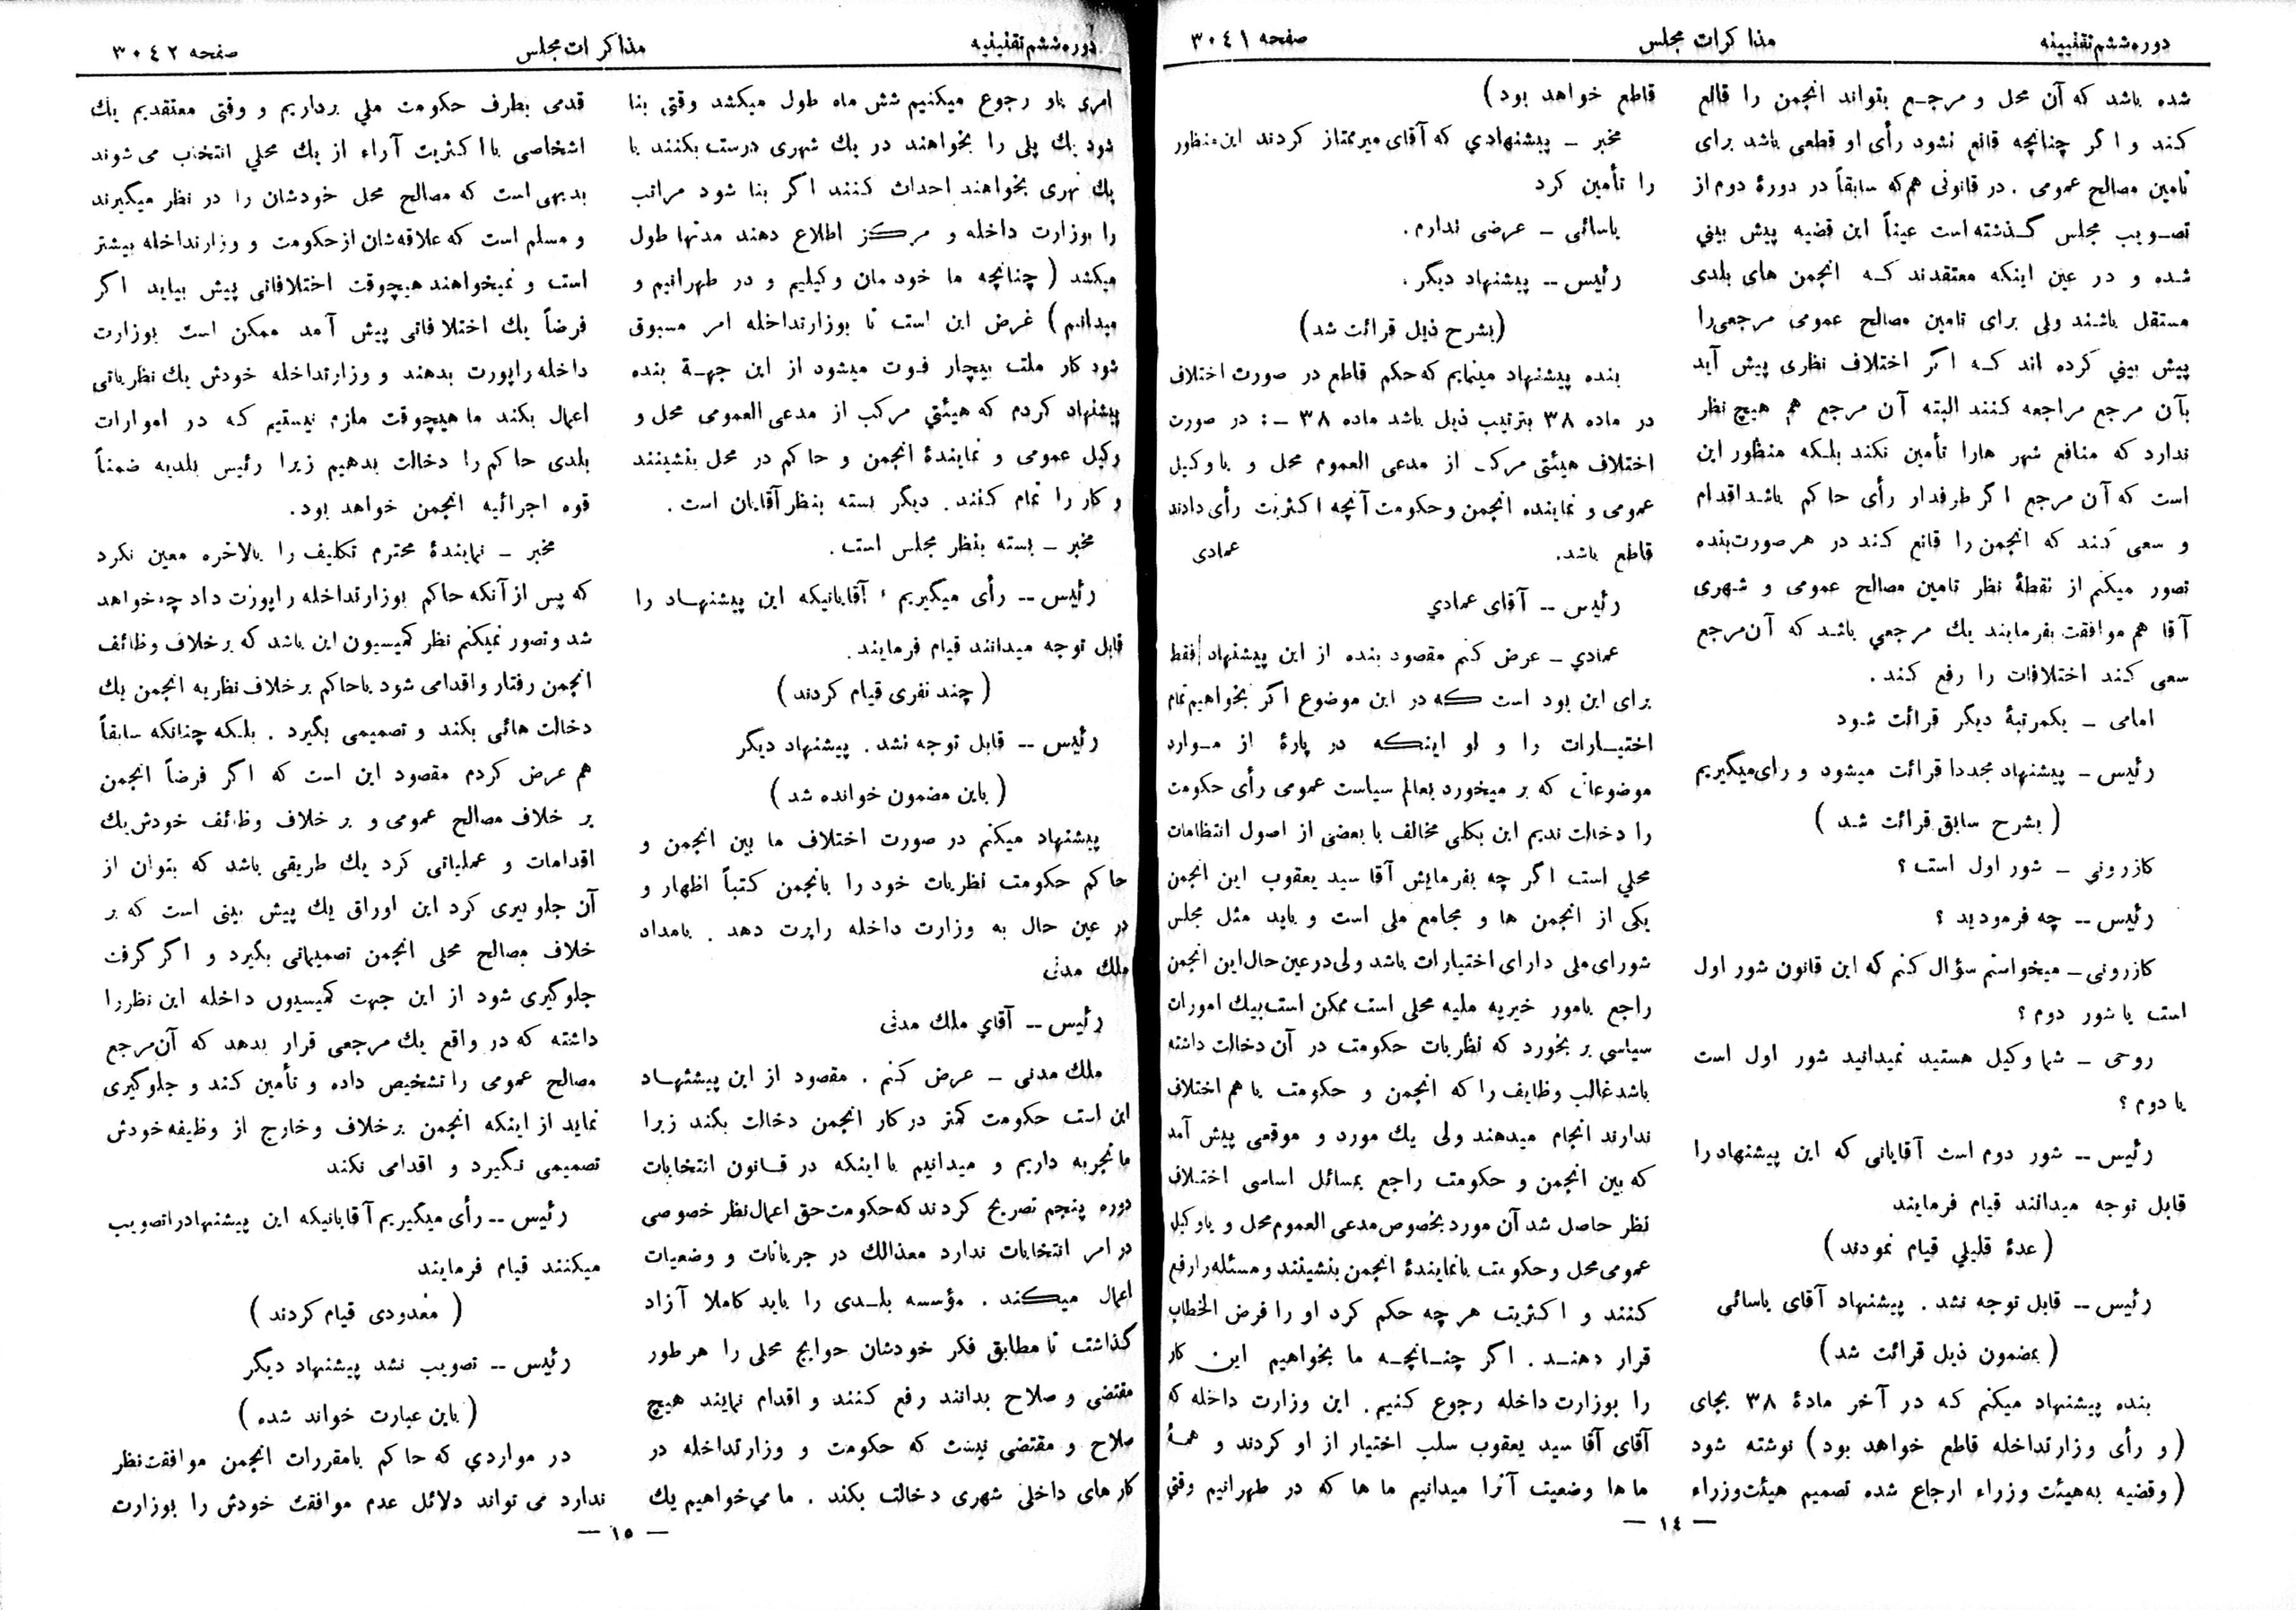 دوره ششم تقنینیه
مذاکرات مجلس
صفحه ۳۰۴۱
شده باشد که آن محل و مرجع بتواند انجمن را قانع
کند و اگر چنانچه قانع نشود رأی او قطعی باشد برای
تامین مصالح عمومی . در قانونی هم که سابقاً در دورهٔ دوم از
تصویب مجلس گذشته است عیناً این قضیه پیش بینی
شده و در عین اینکه معتقدند که انجمن های بلدی
مستقل باشند ولی برای تامین مصالح عمومی مرجعی را
پیش بینی کرده اند که اگر اختلاف نظری پیش آید
بآن مرجع مراجعه کنند البته آن مرجع هم هیچ نظر
ندارد که منافع شهر هارا تأمین نکند بلکه منظور این
است که آن مرجع اگر طرفدار رأی حاکم باشد اقدام
و سعی کند که انجمن را قانع کند در هر صورت بنده
تصور میکنم از نقطهٔ نظر تامین مصالح عمومی و شهری
آقا هم موافقت بفرمایند یك مرجعی باشد که آن مرجع
سعی کند اختلافات را رفع کند .
امامی ـ یکمرتبهٔ دیگر قرائت شود
رئیس ـ پیشنهاد مجددا قرائت میشود و رای میگیریم
( بشرح سابق قرائت شد )
کازرونی ـ شور اول است ؟
رئیس -- چه فرمودید ؟
کازرونی ـ میخواستم سؤال کنم که این قانون شور اول
است یا شور دوم ؟
روحی ـ شما وکیل هستید نمیدانید شور اول است
یا دوم ؟
رئیس -- شور دوم است آقایانی که این پیشنهاد را
قابل توجه میدانند قیام فرمایند
( عدهٔ قلیلی قیام نمودند )
رئیس -- قابل توجه نشد . پیشنهاد آقای یاسائی
( بمضمون ذیل قرائت شد )
بنده پیشنهاد میکنم که در آخر مادهٔ ۳۸ بجای
( و رأی وزارتداخله قاطع خواهد بود ) نوشته شود
( وقضیه به هیئت وزراء ارجاع شده تصمیم هیئت وزراء
قاطع خواهد بود )
مخبر ـ پیشنهادی که آقای میرممتاز کردند این منظور
را تأمین کرد
یاسائی ـ عرضی ندارم .
رئیس -- پیشنهاد دیگر .
( بشرح ذیل قرائت شد )
بنده پیشنهاد مینمایم که حکم قاطع در صورت اختلاف
در ماده ۳۸ بترتیب ذیل باشد ماده ۳۸ ـ : در صورت
اختلاف هیئتی مرکب از مدعی العموم محل و یا وکیل
عمومی و نماینده انجمن و حکومت آنچه اکثریت رأی دادند
قاطع باشد. عمادی
رئیس -- آقای عمادی
عمادی ـ عرض کنم مقصود بنده از این پیشنهاد فقط
برای این بود است که در این موضوع اگر بخواهیم تمام
اختیارات را و لو اینکه در پارهٔ از موارد
موضوعاتی که بر میخورد بعالم سیاست عمومی رأی حکومت
را دخالت ندیم این بکلی مخالف با بعضی از اصول انتظامات
محلی است اگر چه بفرمایش آقا سید یعقوب این انجمن
یکی از انجمن ها و مجامع ملی است و باید مثل مجلس
شورای ملی دارای اختیارات باشد ولی در عین حال این انجمن
راجع بامور خیریه ملیه محلی است ممکن است بیك امورات
سیاسی بر بخورد که نظریات حکومت در آن دخالت داشته
باشد غالب وظایف را که انجمن و حکومت با هم اختلاف
ندارند انجام میدهند ولی یك مورد و موقعی پیش آمد
که بین انجمن و حکومت راجع بمسائل اساسی اختلاف
نظر حاصل شد آن مورد بخصوص مدعی العموم محل و یا وکیل
عمومی محل و حکومت بانمایندهٔ انجمن بنشینند و مسئله را رفع
کنند و اکثریت هر چه حکم کرد او را فرض الخطاب
قرار دهند . اگر چنانچه ما بخواهیم این کار
را بوزارت داخله رجوع کنیم . این وزارت داخله که
آقای آقا سید یعقوب سلب اختیار از او کردند و همهٔ
ما ها وضعیت آنرا میدانیم ما ها که در طهرانیم وقتی
— ۱٤ —
دوره ششم تقنینیه
مذاکرات مجلس
صفحه ۳۰۴۲
امری باو رجوع میکنیم شش ماه طول میکشد وقتی بنا
شود یك پلی را بخواهند در یك شهری درست بکنند یا
یك نهری بخواهند احداث کنند اگر بنا شود مراتب
را بوزارت داخله و مرکز اطلاع دهند مدتها طول
میکشد ( چنانچه ما خودمان وکیلیم و در طهرانیم و
میدانیم ) غرض این است تا بوزارتداخله امر مسبوق
شود کار ملت بیچار فوت میشود از این جهة بنده
پیشنهاد کردم که هیئتی مرکب از مدعی العمومی محل و
وکیل عمومی و نمایندهٔ انجمن و حاکم در محل بنشینند
و کار را تمام کنند . دیگر بسته بنظر آقایان است .
مخبر ـ بسته بنظر مجلس است .
رئیس -- رأی میگیریم ، آقایانیکه این پیشنهاد را
قابل توجه میدانند قیام فرمایند .
( چند نفری قیام کردند )
رئیس -- قابل توجه نشد . پیشنهاد دیگر
( باین مضمون خوانده شد )
پیشنهاد میکنم در صورت اختلاف ما بین انجمن و
حاکم حکومت نظریات خود را بانجمن کتباً اظهار و
در عین حال به وزارت داخله راپرت دهد . بامداد
ملك مدنی
رئیس -- آقای ملك مدنی
ملك مدنی ـ عرض کنم . مقصود از این پیشنهاد
این است حکومت کمتر در کار انجمن دخالت بکند زیرا
ما تجربه داریم و میدانیم با اینکه در قانون انتخابات
دوره پنجم تصریح کردند که حکومت حق اعمال نظر خصوصی
در امر انتخابات ندارد معذالك در جریانات و وضعیات
اعمال میکند . مؤسسه بلدی را باید کاملا آزاد
گذاشت تا مطابق فکر خودشان حوایج محلی را هر طور
مقتضی و صلاح بدانند رفع کنند و اقدام نمایند هیچ
صلاح و مقتضی نیست که حکومت و وزارتداخله در
کارهای داخلی شهری دخالت بکند . ما می خواهیم یك
قدمی بطرف حکومت ملی برداریم و وقتی معتقدیم یك
اشخاصی با اکثریت آراء از یك محلی انتخاب می شوند
بدیهی است که مصالح محل خودشان را در نظر میگیرند
و مسلم است که علاقه شان از حکومت و وزارتداخله بیشتر
است و نمیخواهند هیچوقت اختلافاتی پیش بیاید اگر
فرضاً یك اختلافاتی پیش آمد ممکن است بوزارت
داخله راپورت بدهند و وزارتداخله خودش یك نظریاتی
اعمال بکند ما هیچوقت ملزم نیستیم که در امورات
بلدی حاکم را دخالت بدهیم زیرا رئیس بلدیه ضمناً
قوه اجرائیه انجمن خواهد بود .
مخبر ـ نمایندهٔ محترم تکلیف را بالاخره معین نکرد
که پس از آنکه حاکم بوزارتداخله راپورت داد چه خواهد
شد و تصور نمیکنم نظر کمیسیون این باشد که بر خلاف وظائف
انجمن رفتار و اقدامی شود یا حاکم بر خلاف نظریه انجمن یك
دخالت هائی بکند و تصمیمی بگیرد . بلکه چنانکه سابقاً
هم عرض کردم مقصود این است که اگر فرضاً انجمن
بر خلاف مصالح عمومی و بر خلاف وظائف خودش یك
اقدامات و عملیاتی کرد یك طریقی باشد که بتوان از
آن جلوگیری کرد این اوراق یك پیش بینی است که بر
خلاف مصالح محلی انجمن تصمیماتی بگیرد و اگر گرفت
جلوگیری شود از این جهت کمیسیون داخله این نظر را
داشته که در واقع یك مرجعی قرار بدهد که آن مرجع
مصالح عمومی را تشخیص داده و تأمین کند و جلوگیری
نماید از اینکه انجمن بر خلاف و خارج از وظیفه خودش
تصمیمی نگیرد و اقدامی نکند
رئیس -- رأی میگیریم آقایانیکه این پیشنهاد را تصویب
میکنند قیام فرمایند
( معدودی قیام کردند )
رئیس -- تصویب نشد پیشنهاد دیگر
( باین عبارت خواند شده )
در مواردی که حاکم بامقررات انجمن موافقت نظر
ندارد می تواند دلائل عدم موافقت خودش را بوزارت
— ۱٥ —